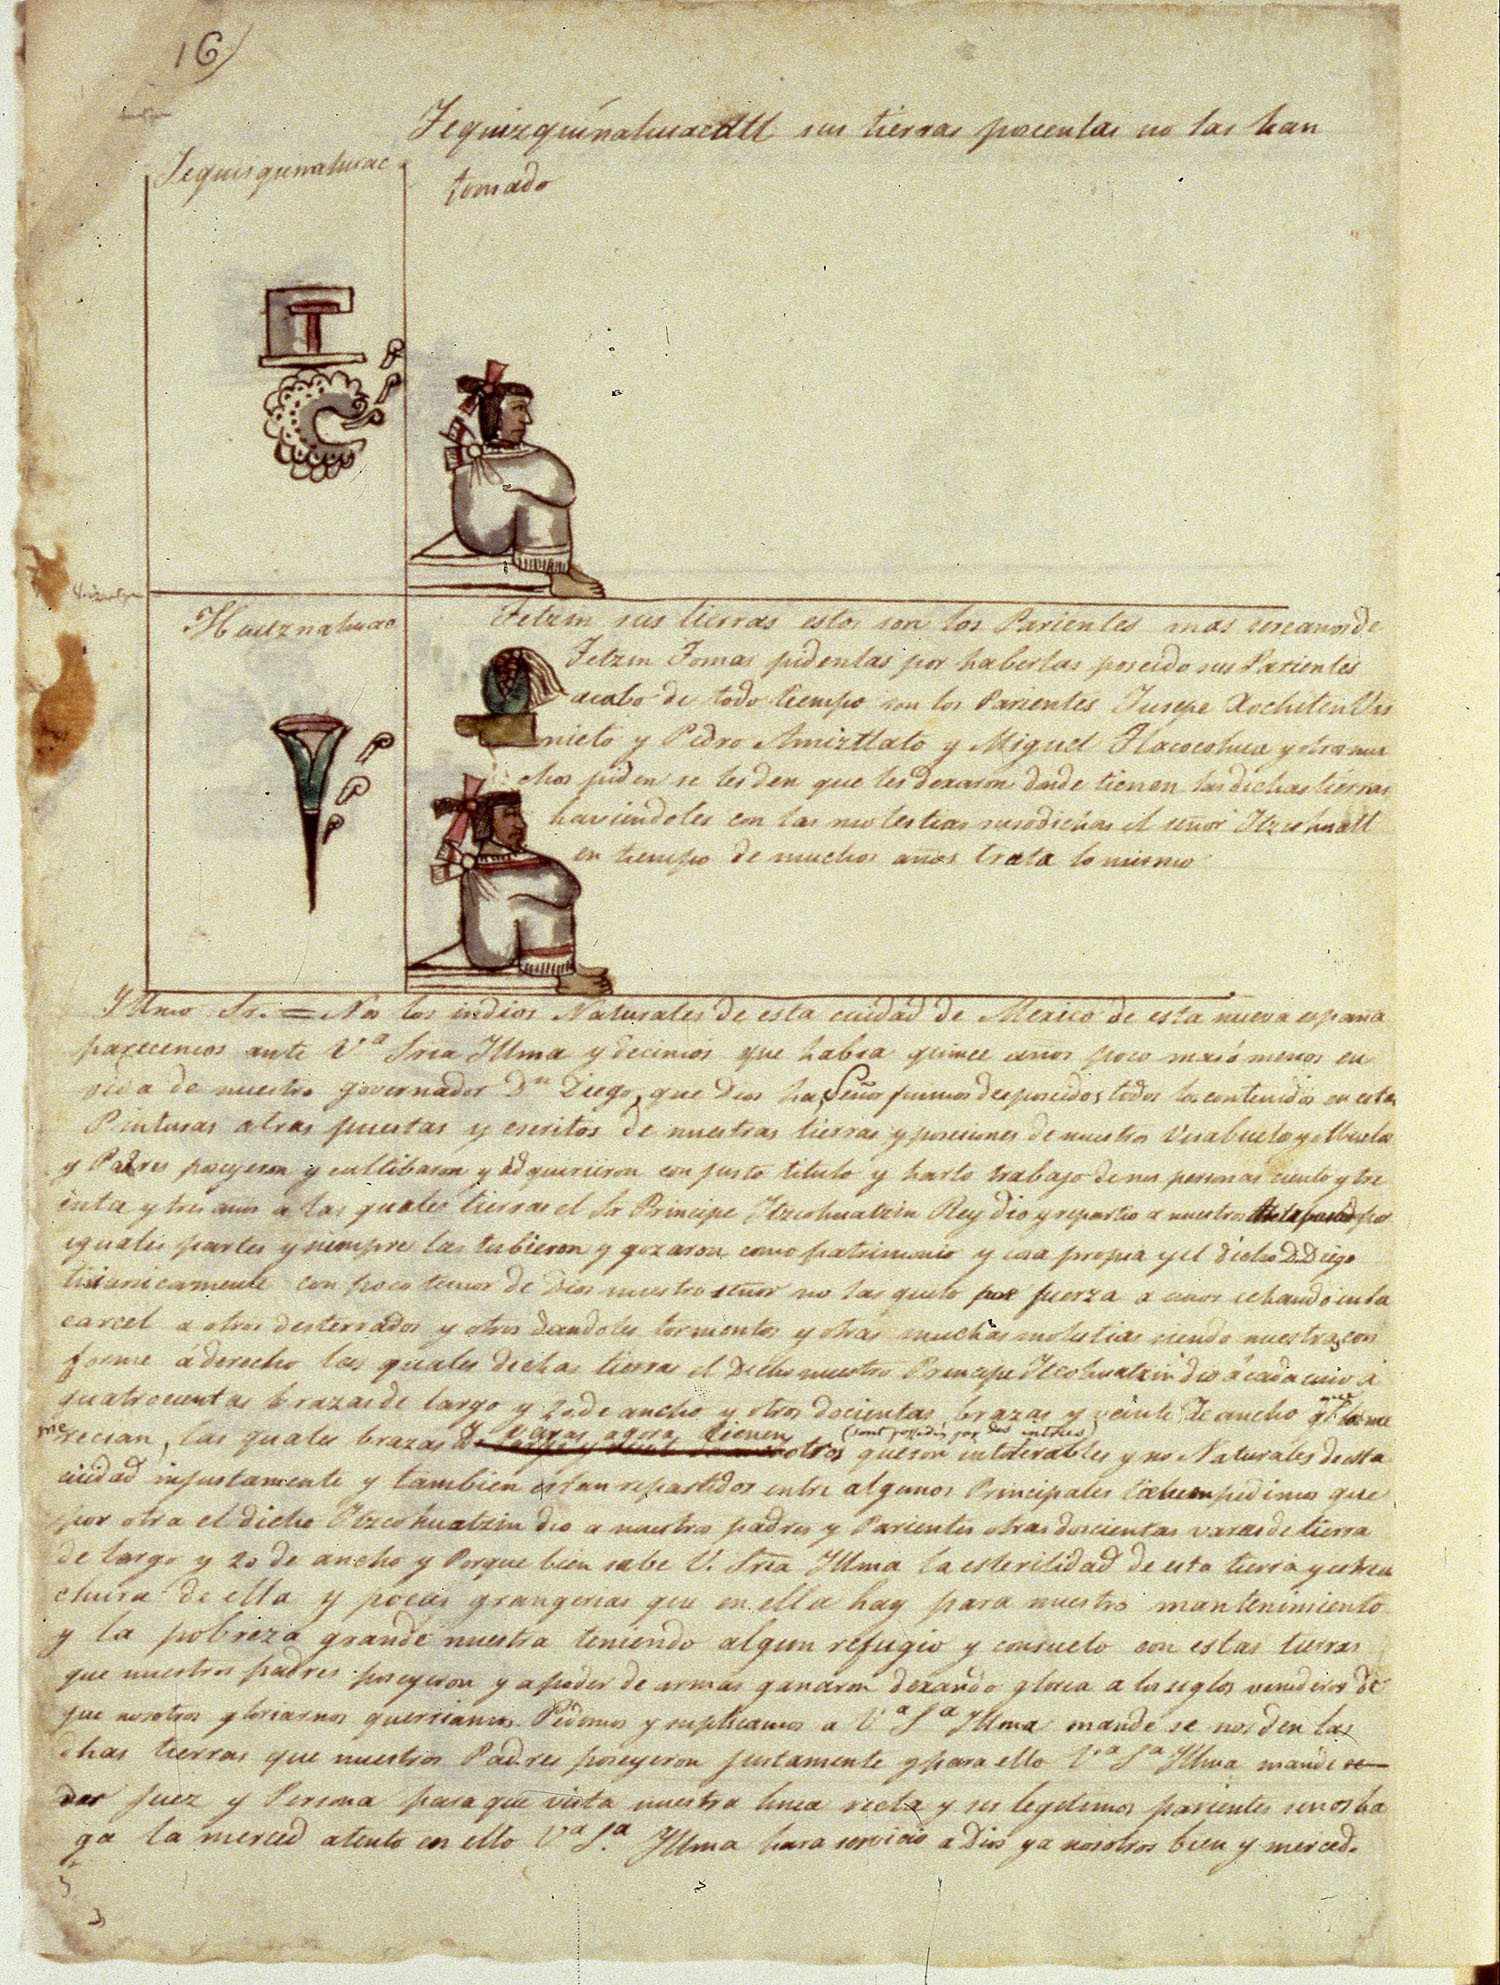 16
Tequizquinahuacatl sus tierras pocentas no las han
tomado
Tequisquinahuac
Huiznahuac
Tetzin sus tierras estos son los Parientes mas sercanos de
Tetzin Tomas pidenlas por haberlas poseido sus Parientes
acabo de todo tiempo son los Parientes Jusepe Xochitentl su
nieto y Pedro Amiztlato y Miguel Tlacocohua y otros mu
chos piden se les den que les dexaron donde tienen las dichas tierras
haviendoles con las molestias susodichas el señor Itzcohuatl
en tiempo de muchos años trata lo mismo
Illmo Sr. = Nos los indios Naturales de esta ciudad de Mexico de esta nueva españa
parecemos ante Vª Sria Illma y decimos que habra quince años poco mas ó menos en
vida de nuestro governador Dn Diego, que Dios ha, Señor fuimos desposeidos todos los contenidos en estas
Pinturas atras puestas y escritos de nuestras tierras y posiciones de nuestros Visabuelos y Abuelos
y Padres poseyeron y cultibaron y adquirieron con justo titulo y harto trabajo de sus personas ciento y tre
inta y tres años a las quales tierras el Sr Principe Itzcohuatzin Rey dio y repartio a nuestros por
iguales partes y siempre las tubieron y gozaron como patrimonio y cosa propia y el dicho D. Diego
tiranicamente con poco temor de Dios nuestro señor no las quito por fuerza a unos echando en la
carcel a otros desterrados y otros dandoles tormentos y otras muchas molestias siendo nuestras con
forme á derecho las quales dichas tierras el Dicho nuestro Principe Itzcohuatzin dio á cada uno á
quatrocientas brazas de largo y 20 de ancho y otros docientas brazas y veinte de ancho qe lo me
recian, las quales brazas y varas agora tienen otros (son posedin por dos indios) que son intolerables y no Naturales de esta
ciudad injustamente y tambien estan repartidos entre algunos Principales pedimos que
por otra el dicho Itzcohuatzin dio a nuestros padres y Parientes otras doscientas varas de tierra
de largo y 20 de ancho y Porque bien sabe V. Sria Illma la esterilidad de esta tierra y estre
chura de ella y pocas grangerias que en ella hay para nuestro mantenimiento
y la pobreza grande nuestra teniendo algun refugio y consuelo con estas tierras
que nuestros padres poseyeron y a poder de armas ganaron dexando gloria a los siglos venideros de
que nosotros gloriarnos queriamos. Pedimos y suplicamos a Vª Sª Illma mande se nos den las
dhas tierras que nuestros Padres poseyeron justamente y para ello Vª Sª Illma mande
dar juez y Persona para que vista nuestra linea recta y sus legitimos parientes se nos ha
ga la merced atento en ello Vª Sª. Illma hara servicio a Dios y a nosotros bien y merced.